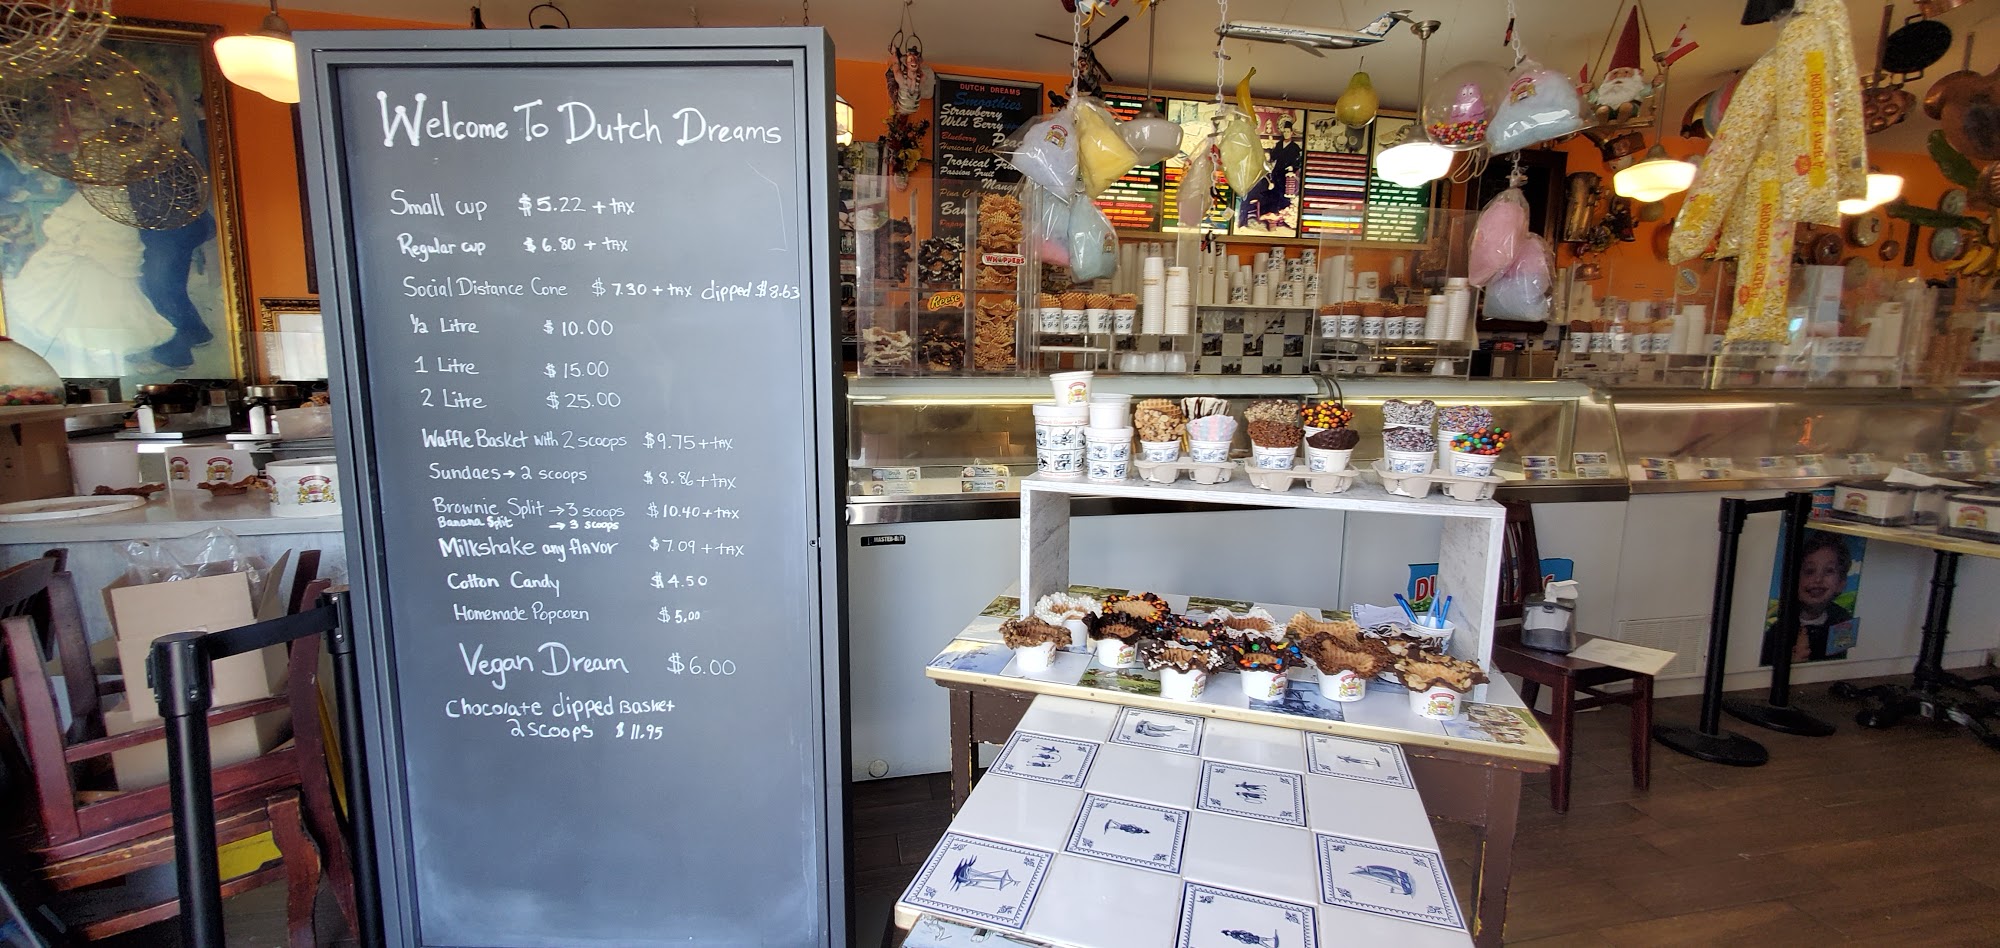 Welcome To Dutch Dreams
Small cup $5.22 + tax
Regular cup $6.80 + tax
Social Distance Cone $7.30 + tax dipped $8.63
1/2 Litre $10.00
1 Litre $15.00
2 Litre $25.00
Waffle Basket with 2 scoops $9.75 + tax
Sundaes → 2 scoops $8.86 + tax
Brownie Split → 3 scoops $10.40 + tax
Banana Split → 3 scoops
Milkshake any flavor $7.09 + tax
Cotton Candy $4.50
Homemade Popcorn $5.00
Vegan Dream $6.00
Chocolate dipped Basket
2 scoops $11.95
DUTCH DREAMS
Smoothies
Strawberry
Wild Berry
Blueberry
Hurricane
Tropical
Passion Fruit
Mango
Pina
WHOPPERS
Reese
POPCORN